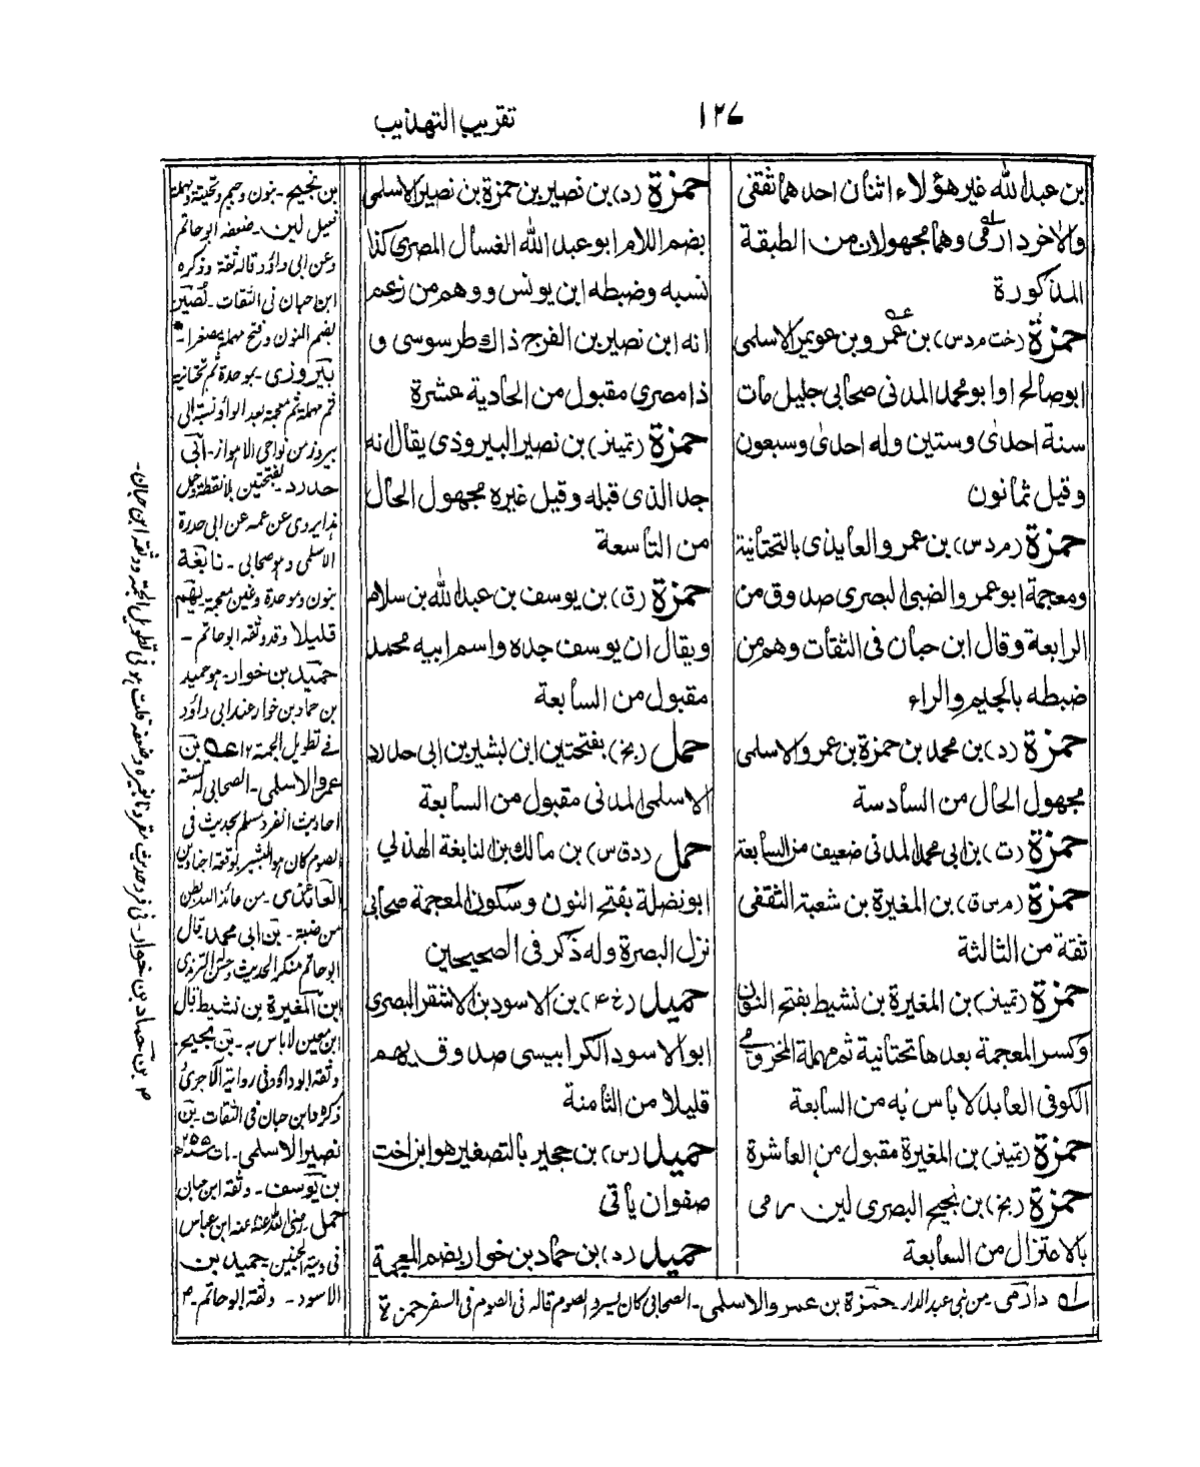 ١٢٧
تقريب التهذيب
بن عبد الله غير هؤلاء اثنان احدهما ثقفى
والاخر دارمى وهما مجهولان من الطبقة
المذكورة
حمزة (خت م د س) بن عمرو بن عويمر الاسلمى
ابو صالح او ابو محمد المدنى صحابى جليل مات
سنة احدى وستين وله احدى وسبعون
وقيل ثمانون
حمزة (م د س) بن عمرو العايذى بالتحتانية
ومعجمة ابو عمر والضبى البصرى صدوق من
الرابعة وقال ابن حبان فى الثقات وهم من
ضبطه بالجيم والراء
حمزة (د) بن محمد بن حمزة بن عمرو الاسلمى
مجهول الحال من السادسة
حمزة (ت) بن ابى محمد المدنى ضعيف من السابعة
حمزة (م س ق) بن المغيرة بن شعبة الثقفى
ثقة من الثالثة
حمزة (تميز) بن المغيرة بن نشيط بفتح النون
وكسر المعجمة بعدها تحتانية ثم مهملة المخزومى
الكوفى العابد لا بأس به من السابعة
حمزة (تميز) بن المغيرة مقبول من العاشرة
حمزة (بخ) بن نجيح البصرى لين رمى
بالاعتزال من السابعة
حمزة (د) بن نصير بن حمزة بن نصير الاسلمى
بضم اللام ابو عبد الله الغسال المصرى كذا
نسبه وضبطه ابن يونس ووهم من زعم
انه ابن نصير بن الفرج ذاك طرسوسى و
ذا مصرى مقبول من الحادية عشرة
حمزة (تميز) بن نصير البيروذى يقال انه
جد الذى قبله وقيل غيره مجهول الحال
من التاسعة
حمزة (ق) بن يوسف بن عبد الله بن سلام
ويقال ان يوسف جده واسم ابيه محمد
مقبول من السابعة
حمل (بخ) بفتحتين ابن بشير بن ابى حدرد
الاسلمى المدنى مقبول من السابعة
حمل (د ق س) بن مالك بن النابغة الهذلي
ابو نضلة بفتح النون وسكون المعجمة صحابى
نزل البصرة وله ذكر فى الصحيحين
حميل (خ ۴) بن الاسود بن الاشقر البصرى
ابو الاسود الكرابيسى صدوق يهم
قليلا من الثامنة
حميل (س) بن حجير بالتصغير هو ابن اخت
صفوان يأتى
حميل (د) بن حماد بن خوار بضم المعجمة
بن نجيح - بنون وجيم وتحتية ومهملة
قيل لين - ضعفه ابو حاتم
وعن ابى داؤد قال ثقة وذكره
ابن حبان فى الثقات - نصير
بضم النون وفتح مهملة مصغرا -
بيروذى - بموحدة ثم تحتانية
ثم مهملة ثم معجمة بعد الواو نسبة الى
بيروذ من نواحى الاهواز - ابى
حدرد - بفتحتين بلا نقطة وحمل
هذا يروى عن عمه عن ابى حدرد
الاسلمى وهو صحابى - نابغة
بنون وموحدة وغين معجمة يهم
قليلا وقد وثقه ابو حاتم -
حميد بن خوار - هو حميد
بن حماد بن خوار عند ابى داؤد
فى تطويل الجمة ١٢ عـه بن
عمرو الاسلمى - الصحابى له ستة
احاديث انفرد مسلم بحديث فى
الصوم كان هو البشير بوقعة اجنادين
العائذى - من عائذ الله بطن
من ضبة - بن ابى محمد قال
ابو حاتم منكر الحديث وحسن الترمذى
ابن المغيرة بن نشيط قال
ابن معين لا باس به - بن نجيح
وثقه ابو داؤد فى رواية الآجرى
ذكره ابن حبان فى الثقات - بن
نصير الاسلمى - مات ٢٥٥ھ
بن يوسف - وثقه ابن حبان
حمل - رضى الله عنه عنه ابن عباس
فى دية الجنين - حميد بن
الاسود - وثقه ابو حاتم - ۱۲
لـه دارمى - من بنى عبد الدار حمزة بن عمرو الاسلمى - الصحابى كان يسرد الصوم قاله فى الصوم فى السفر حمزة
بن حماد بن خوار - فى فرد حديث مقرونا بغيره وضعفه قلت هو فى تطويل الجمة ووثقه ابن حبان -